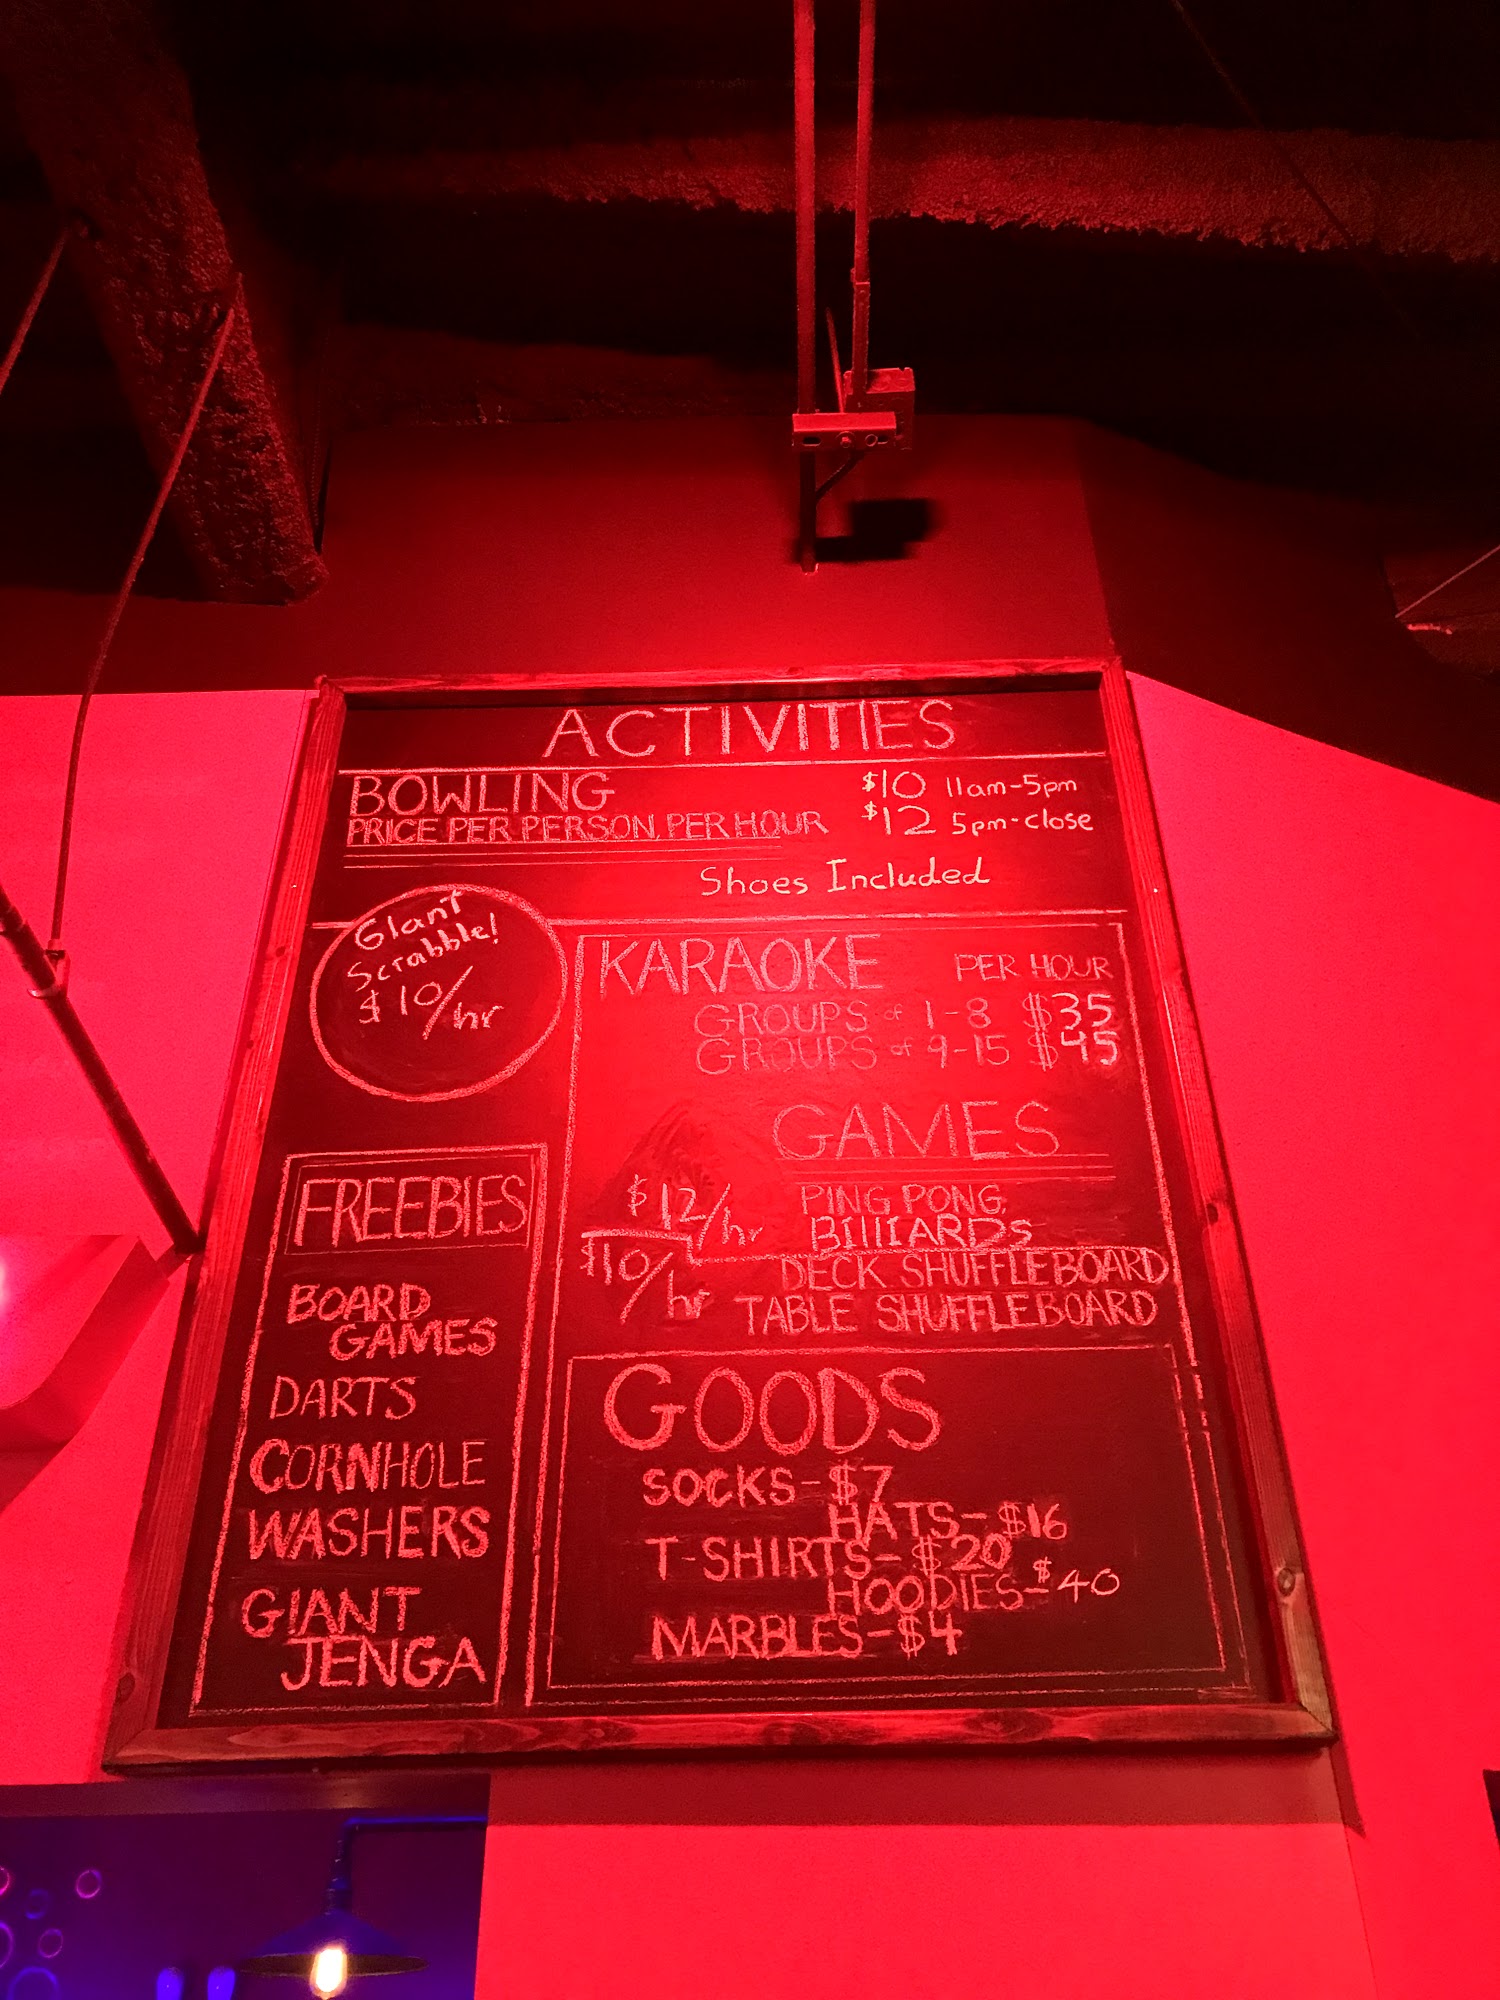 ACTIVITIES
BOWLING
PRICE PER PERSON, PER HOUR
$10 11am-5pm
$12 5pm-close
Shoes Included
Giant
Scrabble!
$10/hr
KARAOKE PER HOUR
GROUPS of 1-8 $35
GROUPS of 9-15 $45
GAMES
$12/hr
PING PONG,
BILLIARDS
$10/hr
DECK SHUFFLEBOARD
TABLE SHUFFLEBOARD
FREEBIES
BOARD
GAMES
DARTS
CORNHOLE
WASHERS
GIANT
JENGA
GOODS
SOCKS-$7
HATS-$16
T-SHIRTS-$20
HOODIES-$40
MARBLES-$4